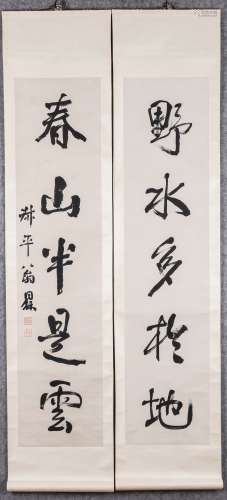 野水多於地
春山半是雲
叔平翁同龢